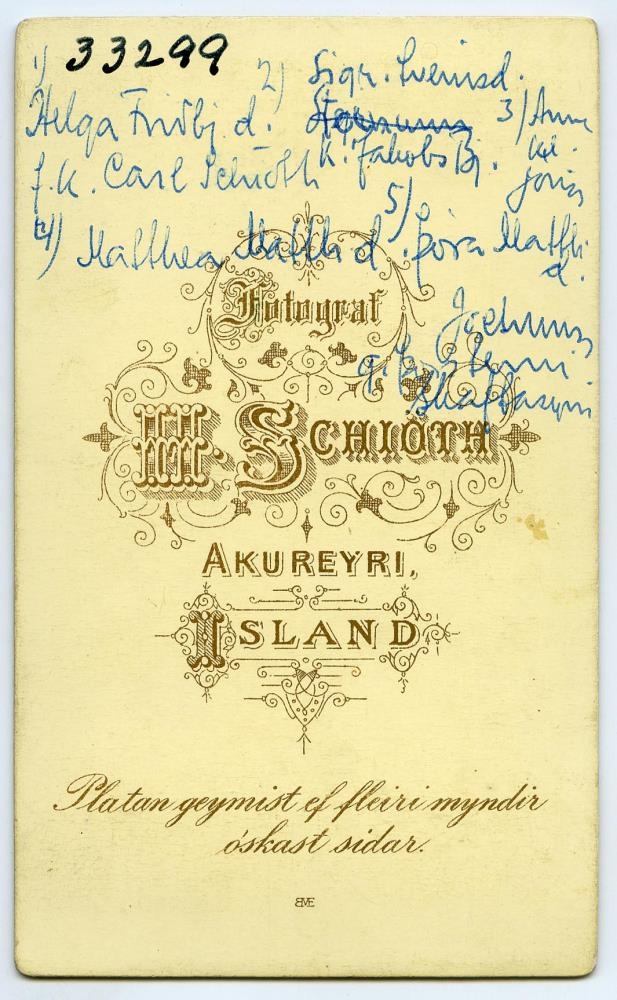 33299
1) Helga Friðbj.d.
f.k. Carl Schiöth
2) Sigr. Sveinsd.
k. Jakobs Bj.
3) Anna
kl.
Jónas
4) Matthea Matth d.
5) Þóra Matth.
d.
Jochums
g. Þorsteini
Skaftasyni
Fotograf
H. SCHIÖTH
AKUREYRI,
ISLAND
Platan geymist ef fleiri myndir
óskast sidar.